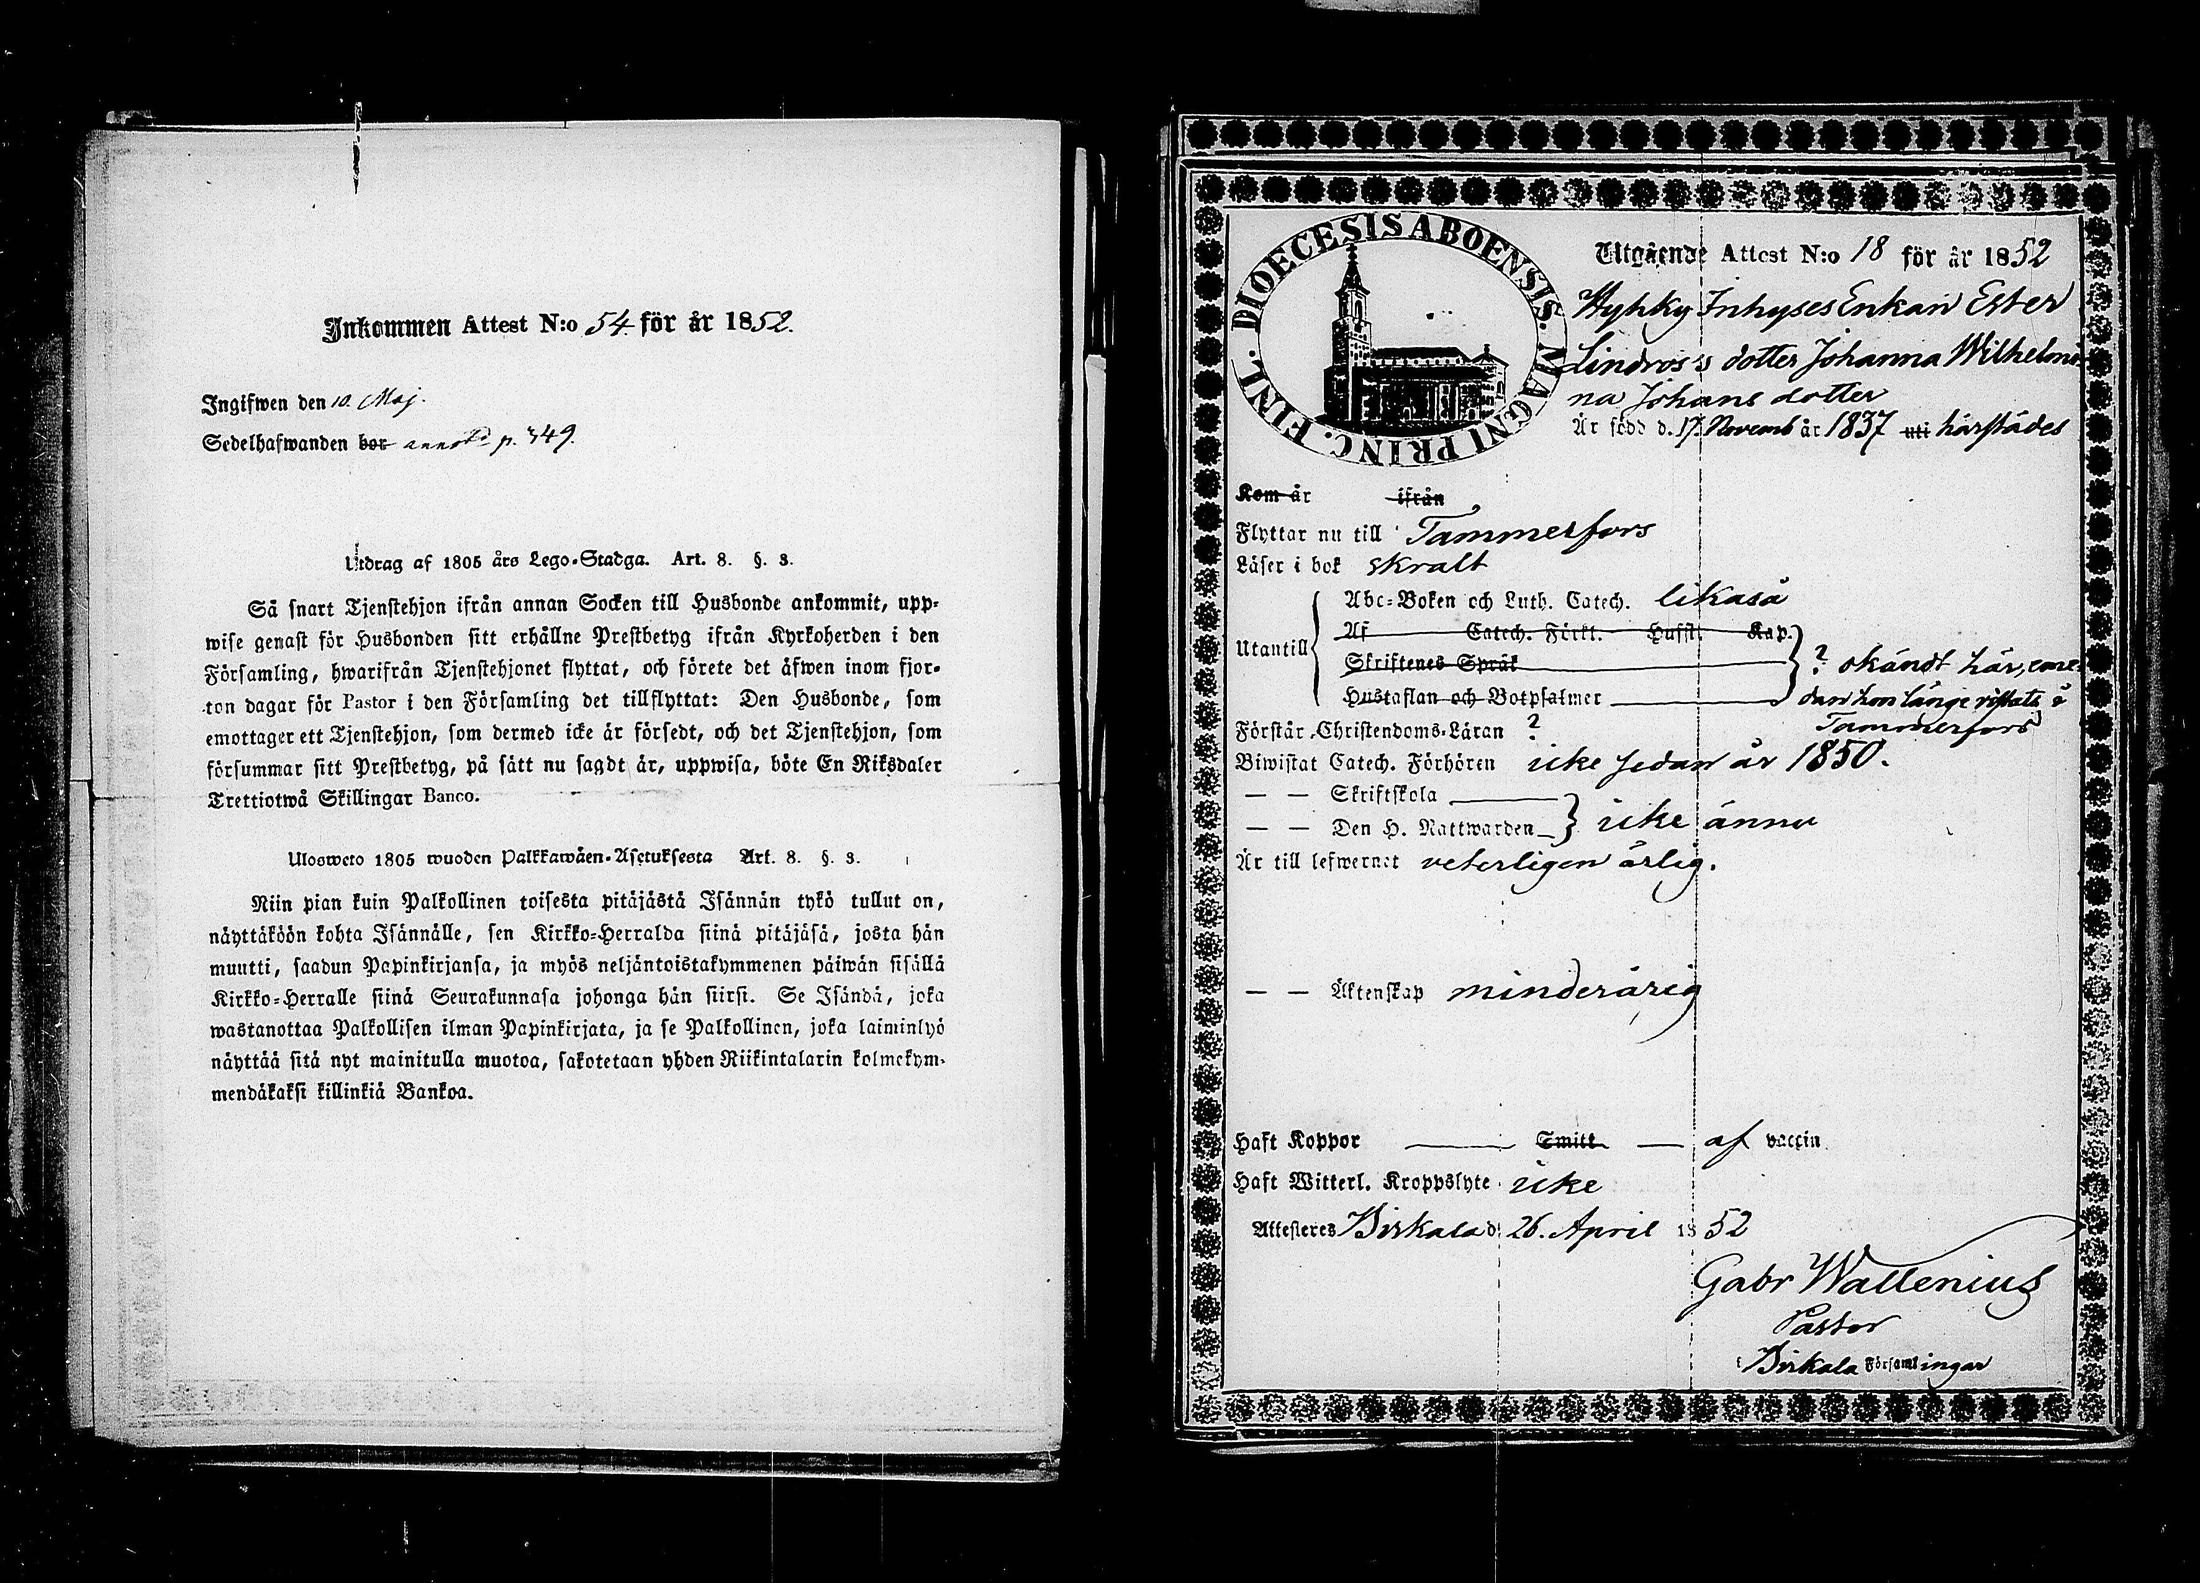 Inkommen Attest N:o 54. för år 1852.
Ingifwen den 10. Maj.
Sedelhafwanden bor annot. p. 349.
Utdrag af 1805 års Lego-Stadga. Art. 8. §. 3.
Så snart Tjenstehjon ifrån annan Socken till Husbonde ankommit, upp-
wise genast för Husbonden sitt erhållne Prestbetyg ifrån Kyrkoherden i den
Församling, hwarifrån Tjenstehjonet flyttat, och förete det äfwen inom fjor-
ton dagar för Pastor i den Församling det tillflyttat: Den Husbonde, som
emottager ett Tjenstehjon, som dermed icke är försedt, och det Tjenstehjon, som
försummar sitt Prestbetyg, på sätt nu sagdt är, uppwisa, böte En Riksdaler
Trettiotwå Skillingar Banco.
Ulosweto 1805 wuoden Palkkawäen-Asetuksesta Art. 8. §. 3.
Niin pian kuin Palkollinen toisesta pitäjästä Isännän tykö tullut on,
näyttäköön kohta Isännälle, sen Kirkko-Herralda siinä pitäjäsä, josta hän
muutti, saadun Papinkirjansa, ja myös neljäntoistakymmenen päiwän sisällä
Kirkko-Herralle siinä Seurakunnasa johonga hän siirsi. Se Isändä, joka
wastanottaa Palkollisen ilman Papinkirjata, ja se Palkollinen, joka laiminlyö
näyttää sitä nyt mainitulla muotoa, sakotetaan yhden Riikintalarin kolmekym-
mendäkaksi killinkiä Bankoa.
DIOECESIS ABOENSIS. MAGNI PRINC. FINL.
Utgående Attest N:o 18 för år 1852
Hyhky Inhyses Enkan Ester
Lindros's dotter Johanna Wilhelmi
na Johans dotter
Är född d. 17. Novemb år 1837 uti härstädes
Kom år ifrån
Flyttar nu till Tammerfors
Läser i bok skralt
Abc-Boken och Luth. Catech. likaså
Utantill
Af Catech. Förkl. Husst. Kap.
Skriftenes Språk ? okändt här, eme
Hustaflan och Botpsalmer dan hon länge vistats i
Förstår Christendoms-Läran ? Tammerfors
Biwistat Catech. Förhören icke sedan år 1850.
— — Skriftskola
— — Den H. Nattwarden icke ännu
Är till lefwernet veterligen ärlig.
— — Äktenskap minderårig
Haft Koppor Smitt af vaccin
Haft Witterl. Kroppslyte icke
Attesteres Birkala d. 26. April 1852
Gabr Wallenius
Pastor
i Birkala Församlingar